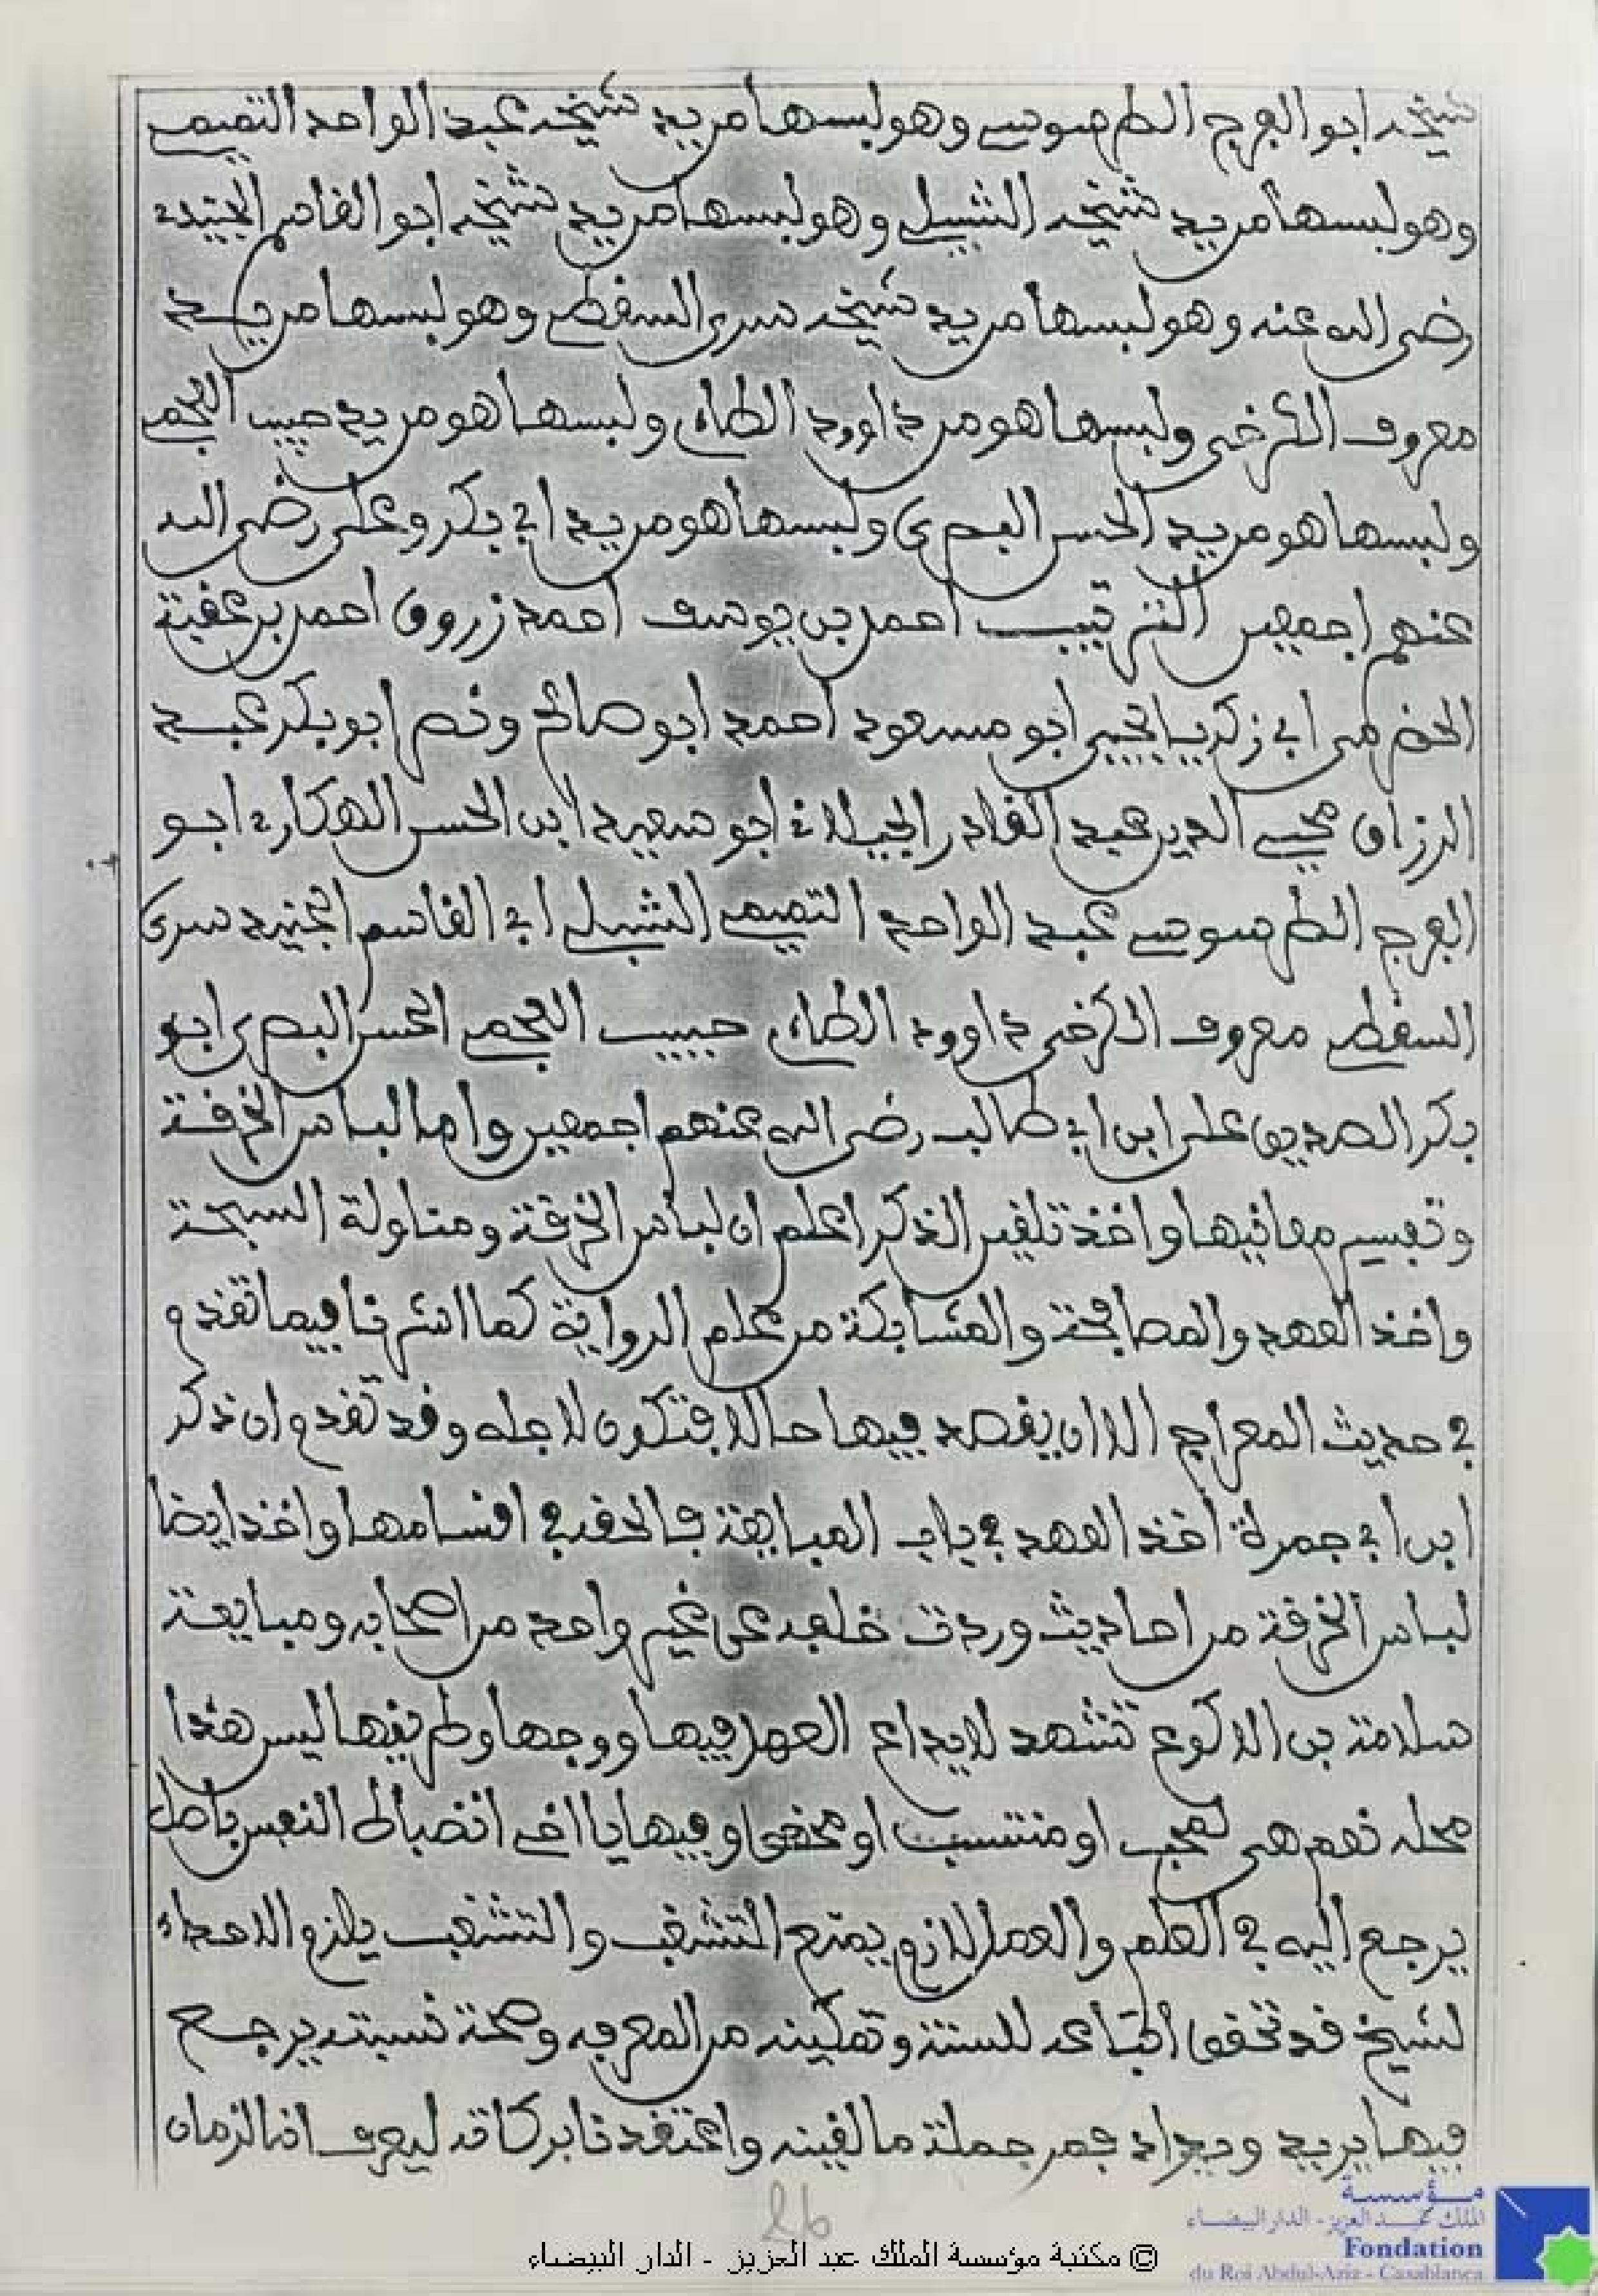 شيخه ابو الفرج الطرصوصي وهو لبسها من يد شيخه عبد الواحد التميمي
وهو لبسها من يد شيخه الشبيلي وهو لبسها من يد شيخه ابو القاسم الجنيدي
رضي الله عنه وهو لبسها من يد شيخه سري السقطي وهو لبسها من يد
معروف الكرخي ولبسها هو من يد داوود الطاءي ولبسها هو من يد حبيب العجمي
ولبسها هو من يد الحسن البصري ولبسها هو من يد ابي بكر وعلي رضي الله
عنهم اجمعين الترتيب احمد بن يوسف احمد زروق احمد بن عقبة
الحضرمي ابي زكرياء يحيى ابو مسعود احمد ابو صالح ونصر ابو بكر عبد
الرزاق محيي الدين عبد القادر الجيلاني ابو سعيد ابن الحسن الهكاري ابو
الفرج الطرصوصي عبد الواحد التميمي الشبلي ابي القاسم الجنيد سري
السقطي معروف الكرخي داوود الطاءي حبيب العجمي الحسن البصري ابو
بكر الصديق علي ابن ابي طالب رضي الله عنهم اجمعين واما لباس الخرقة
وتفسير معانيها واخذ تلقين الذكر اعلم ان لباس الخرقة ومناولة السبحة
واخذ العهد والمصافحة والمشابكة من علم الرواية كما اشرنا فيما تقدم
في حديث المعراج الا ان يقصد فيها حالا فتكون لاجله وقد تقدم ان ذكر
ابن ابي جمرة اخذ العهد في باب المبايعة فالحقه في اقسامها واخذ ايضا
لباس الخرقة من احاديث وردت خلعه على غير واحد من اصحابه ومبايعة
سلامة بن الاكوع تشهد لايداع العمل فيها ووجها وطريقها ليس هذا
محله نعم هي لمحب او منتسب او وفيها يا اخي انضباط النفس باصل
يرجع اليه في العلم والعمل لازم يمنع التشغب والتشعب يلزم الاهداء
لشيخ قد تحقق اتباعه للسنة وتمكينه من المعرفه وصحة نسبته يرجع
فيها يريد ويراد فمن جملة ما لقينه واعتقدنا بركاته ليعرف ان الزمان
26
© مكتبة مؤسسة الملك عبد العزيز - الدار البيضاء
مؤسسة
الملك عبد العزيز - الدار البيضاء
Fondation
du Roi Abdul-Aziz - Casablanca